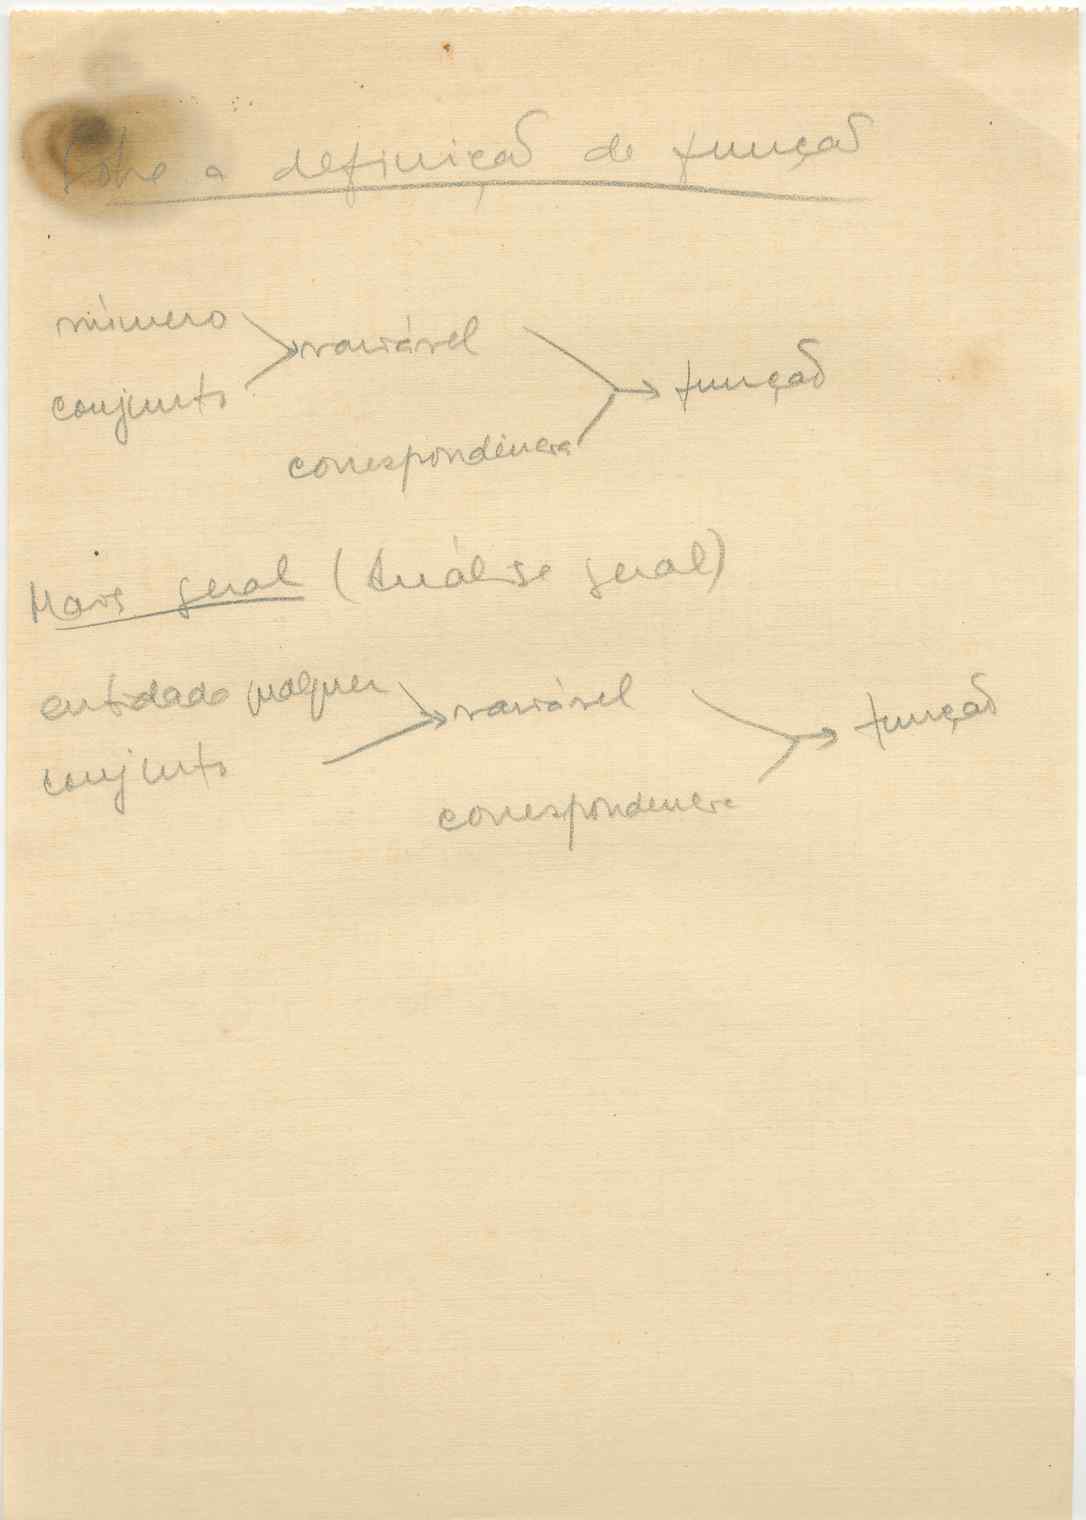 Sobre a definição de função
número
variável
conjunto
função
correspondência
Mais geral (Análise geral)
entidade qualquer
variável
função
conjunto
correspondencia